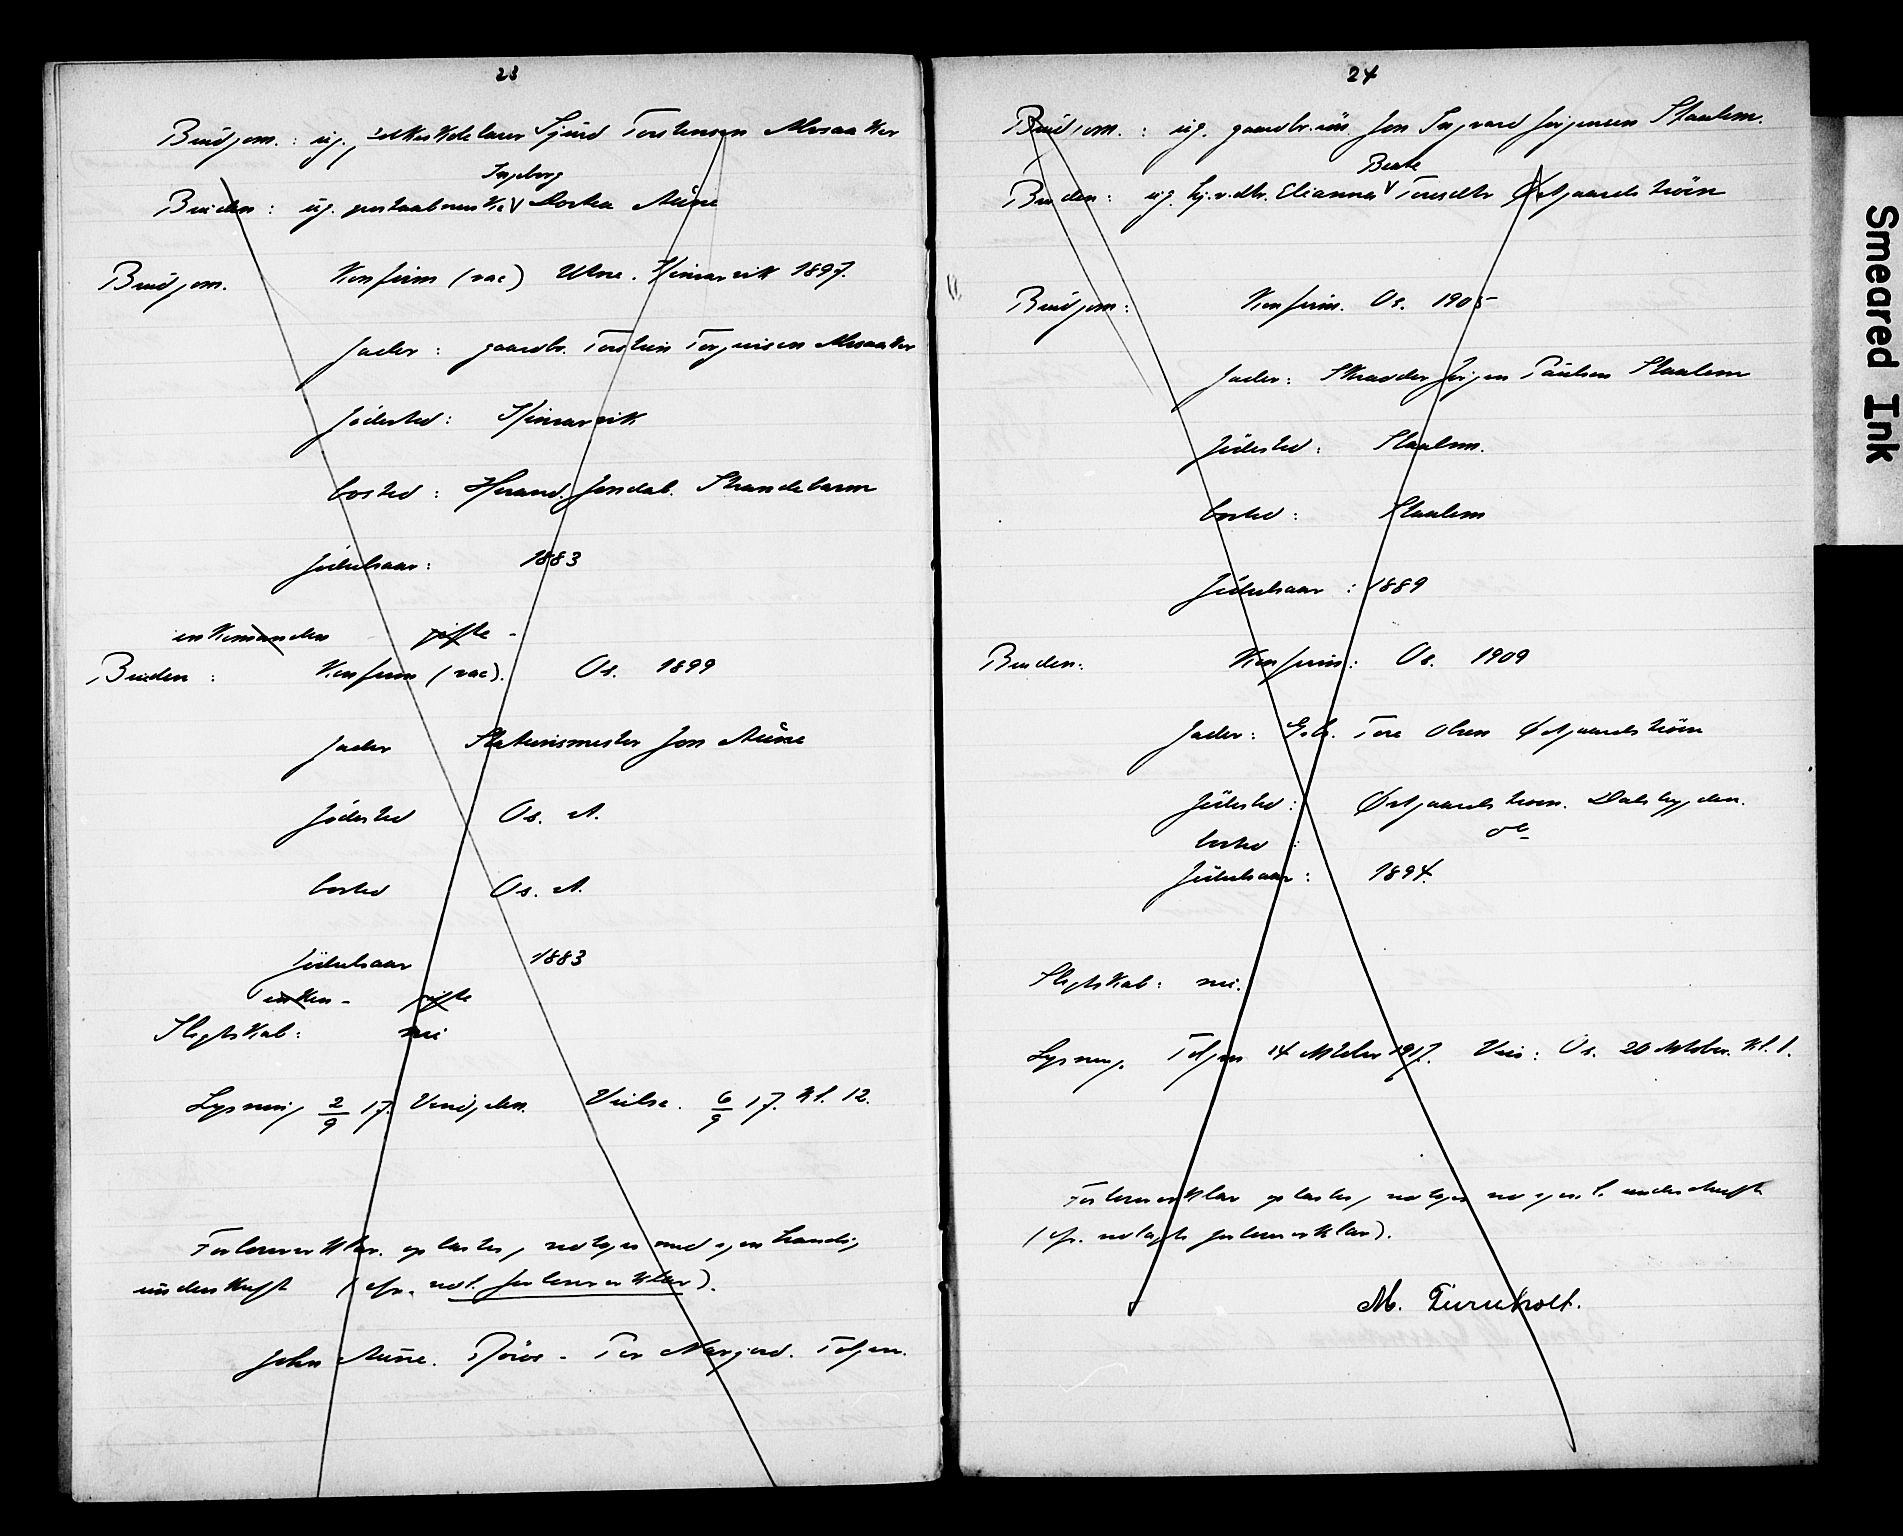 23
Brudgom. : ug. folkeskolelærer Sjurd Torsteinsen Alvsaaker
Ingeborg
Bruden : ug. Dortea Aune
Brudgom. Konfirm (vac) Utne. Kinsarvik 1897.
fader : gaardbr. Torstein Torgeirsen Alvsaaker
födested : Kinsarvik
bosted : Herand. Jondal. Strandebarm
födselsaar : 1883
enkemanden gifte -
Bruden : Konfirm (vac). Os. 1899
fader Stationsmester Jon Aune
födested Os. st.
bosted Os. st.
födselsaar 1883
enken - gifte
Slegtskab: nei
Lysning 2/9 17. Vingelen. Vielse. 6/9 17. Kl. 12.
Forloverərklær. oplæstes, vedtages med egenhændig
underskrift (cfr. vedl. forlovererklær).
John Aune. Röros - Tor Narjord. Tolgen.
24
Brudgom. : ug. gaardbr.sön Jon Ingvard Jörgensen Staalem.
Beate
Bruden : ug. hj.v.dtr. Elianna Toresdtr Östgaardstrøen
Brudgom : Konfirm. Os. 1905
fader : Skrædder Jörgen Paulsen Staalem
födested : Staalem.
bosted : Staalem
födselsaar : 1889
Bruden: Konfirm : Os. 1909
fader : G.br. Tore Olsen Östgaardströen
födested : Östgaardstroen. Dalsbygden.
bosted : do
födselsaar : 1894.
Slegtskab : nei.
Lysning. Tolgen 14 oktober 1917. Vies : Os. 20 oktober. Kl. 1.
Forlovererklær oplæstes, vedtages ved egenh. underskrift
(cfr. vedlagte forlovererklær).
M. Turnholt.
Smeared Ink